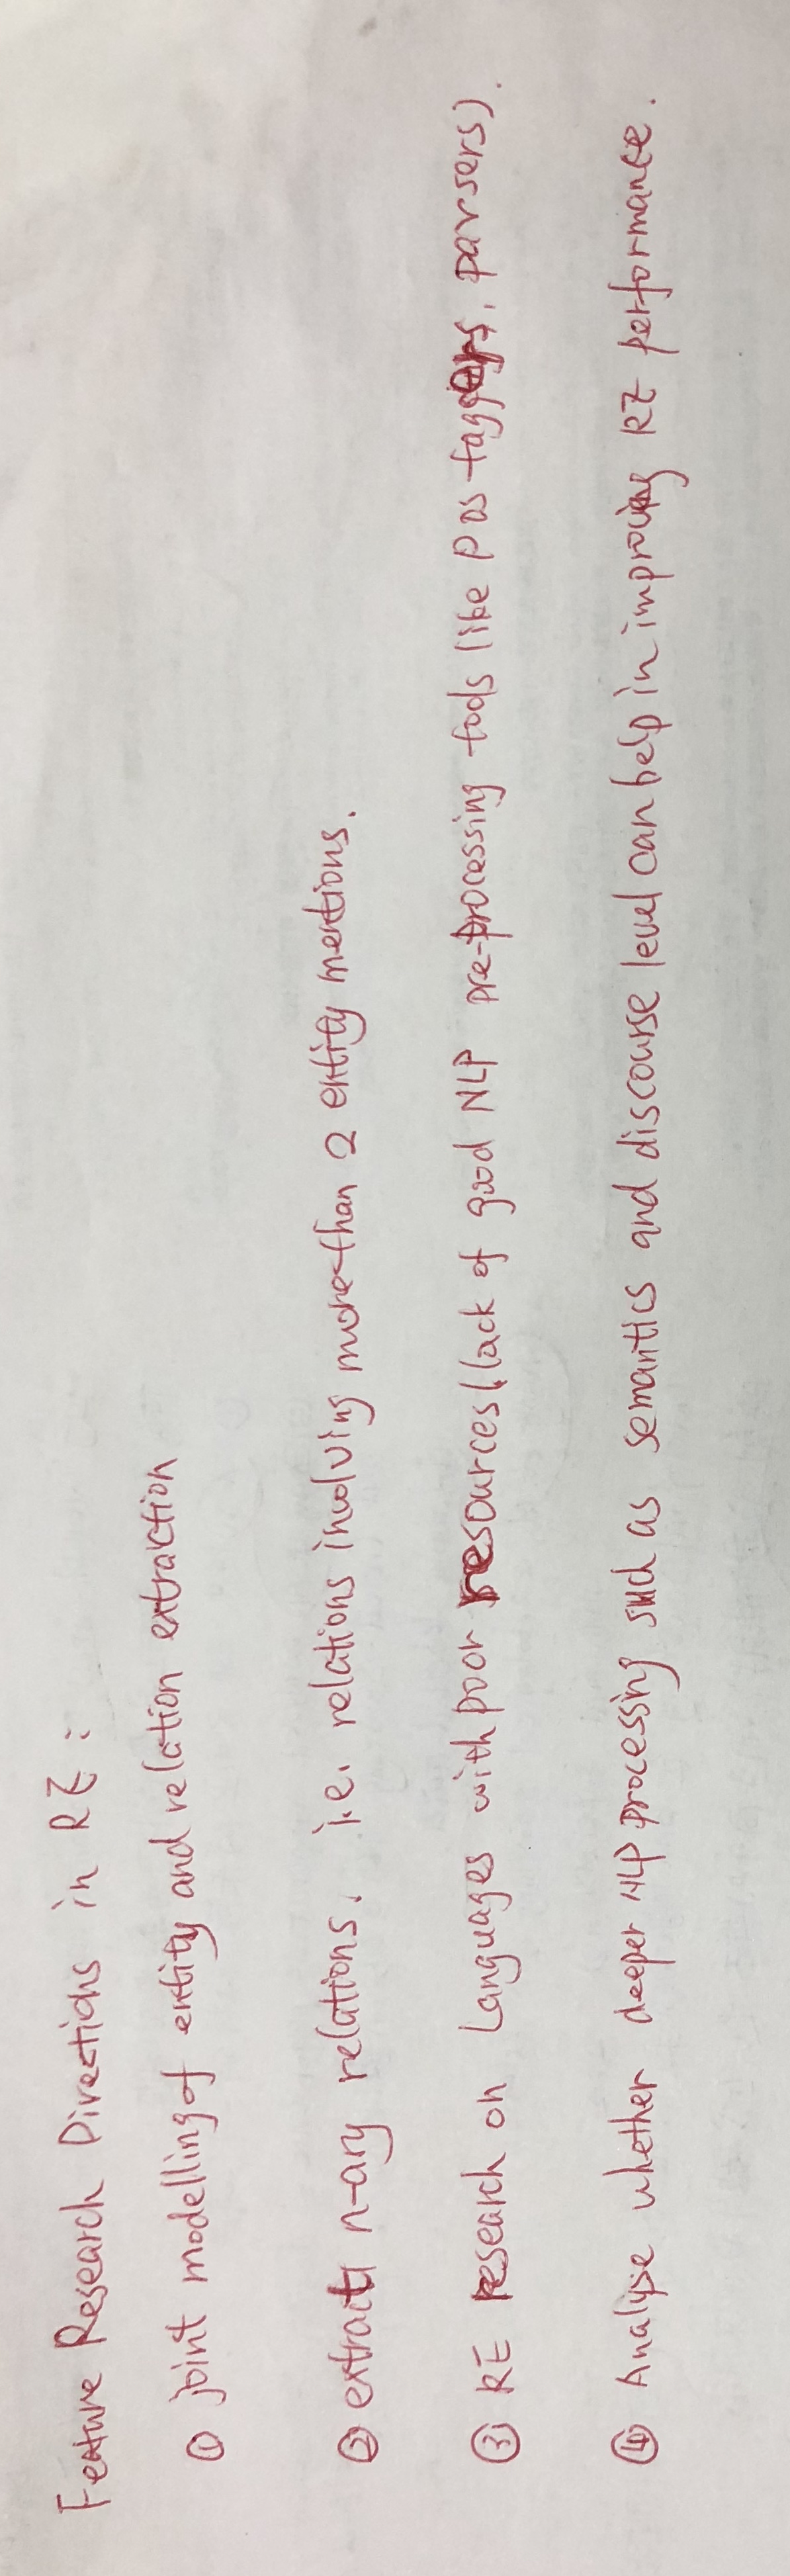 Feature Research Directions in RE:
① joint modelling of entity and relation extraction
② extract n-ary relations. i.e. relations involving more than 2 entity mentions.
③ RE research on Languages with poor resources (lack of good NLP pre-processing tools like pos taggers, parsers).
④ Analyse whether deeper NLP processing such as semantics and discourse level can help in improving RE performance.